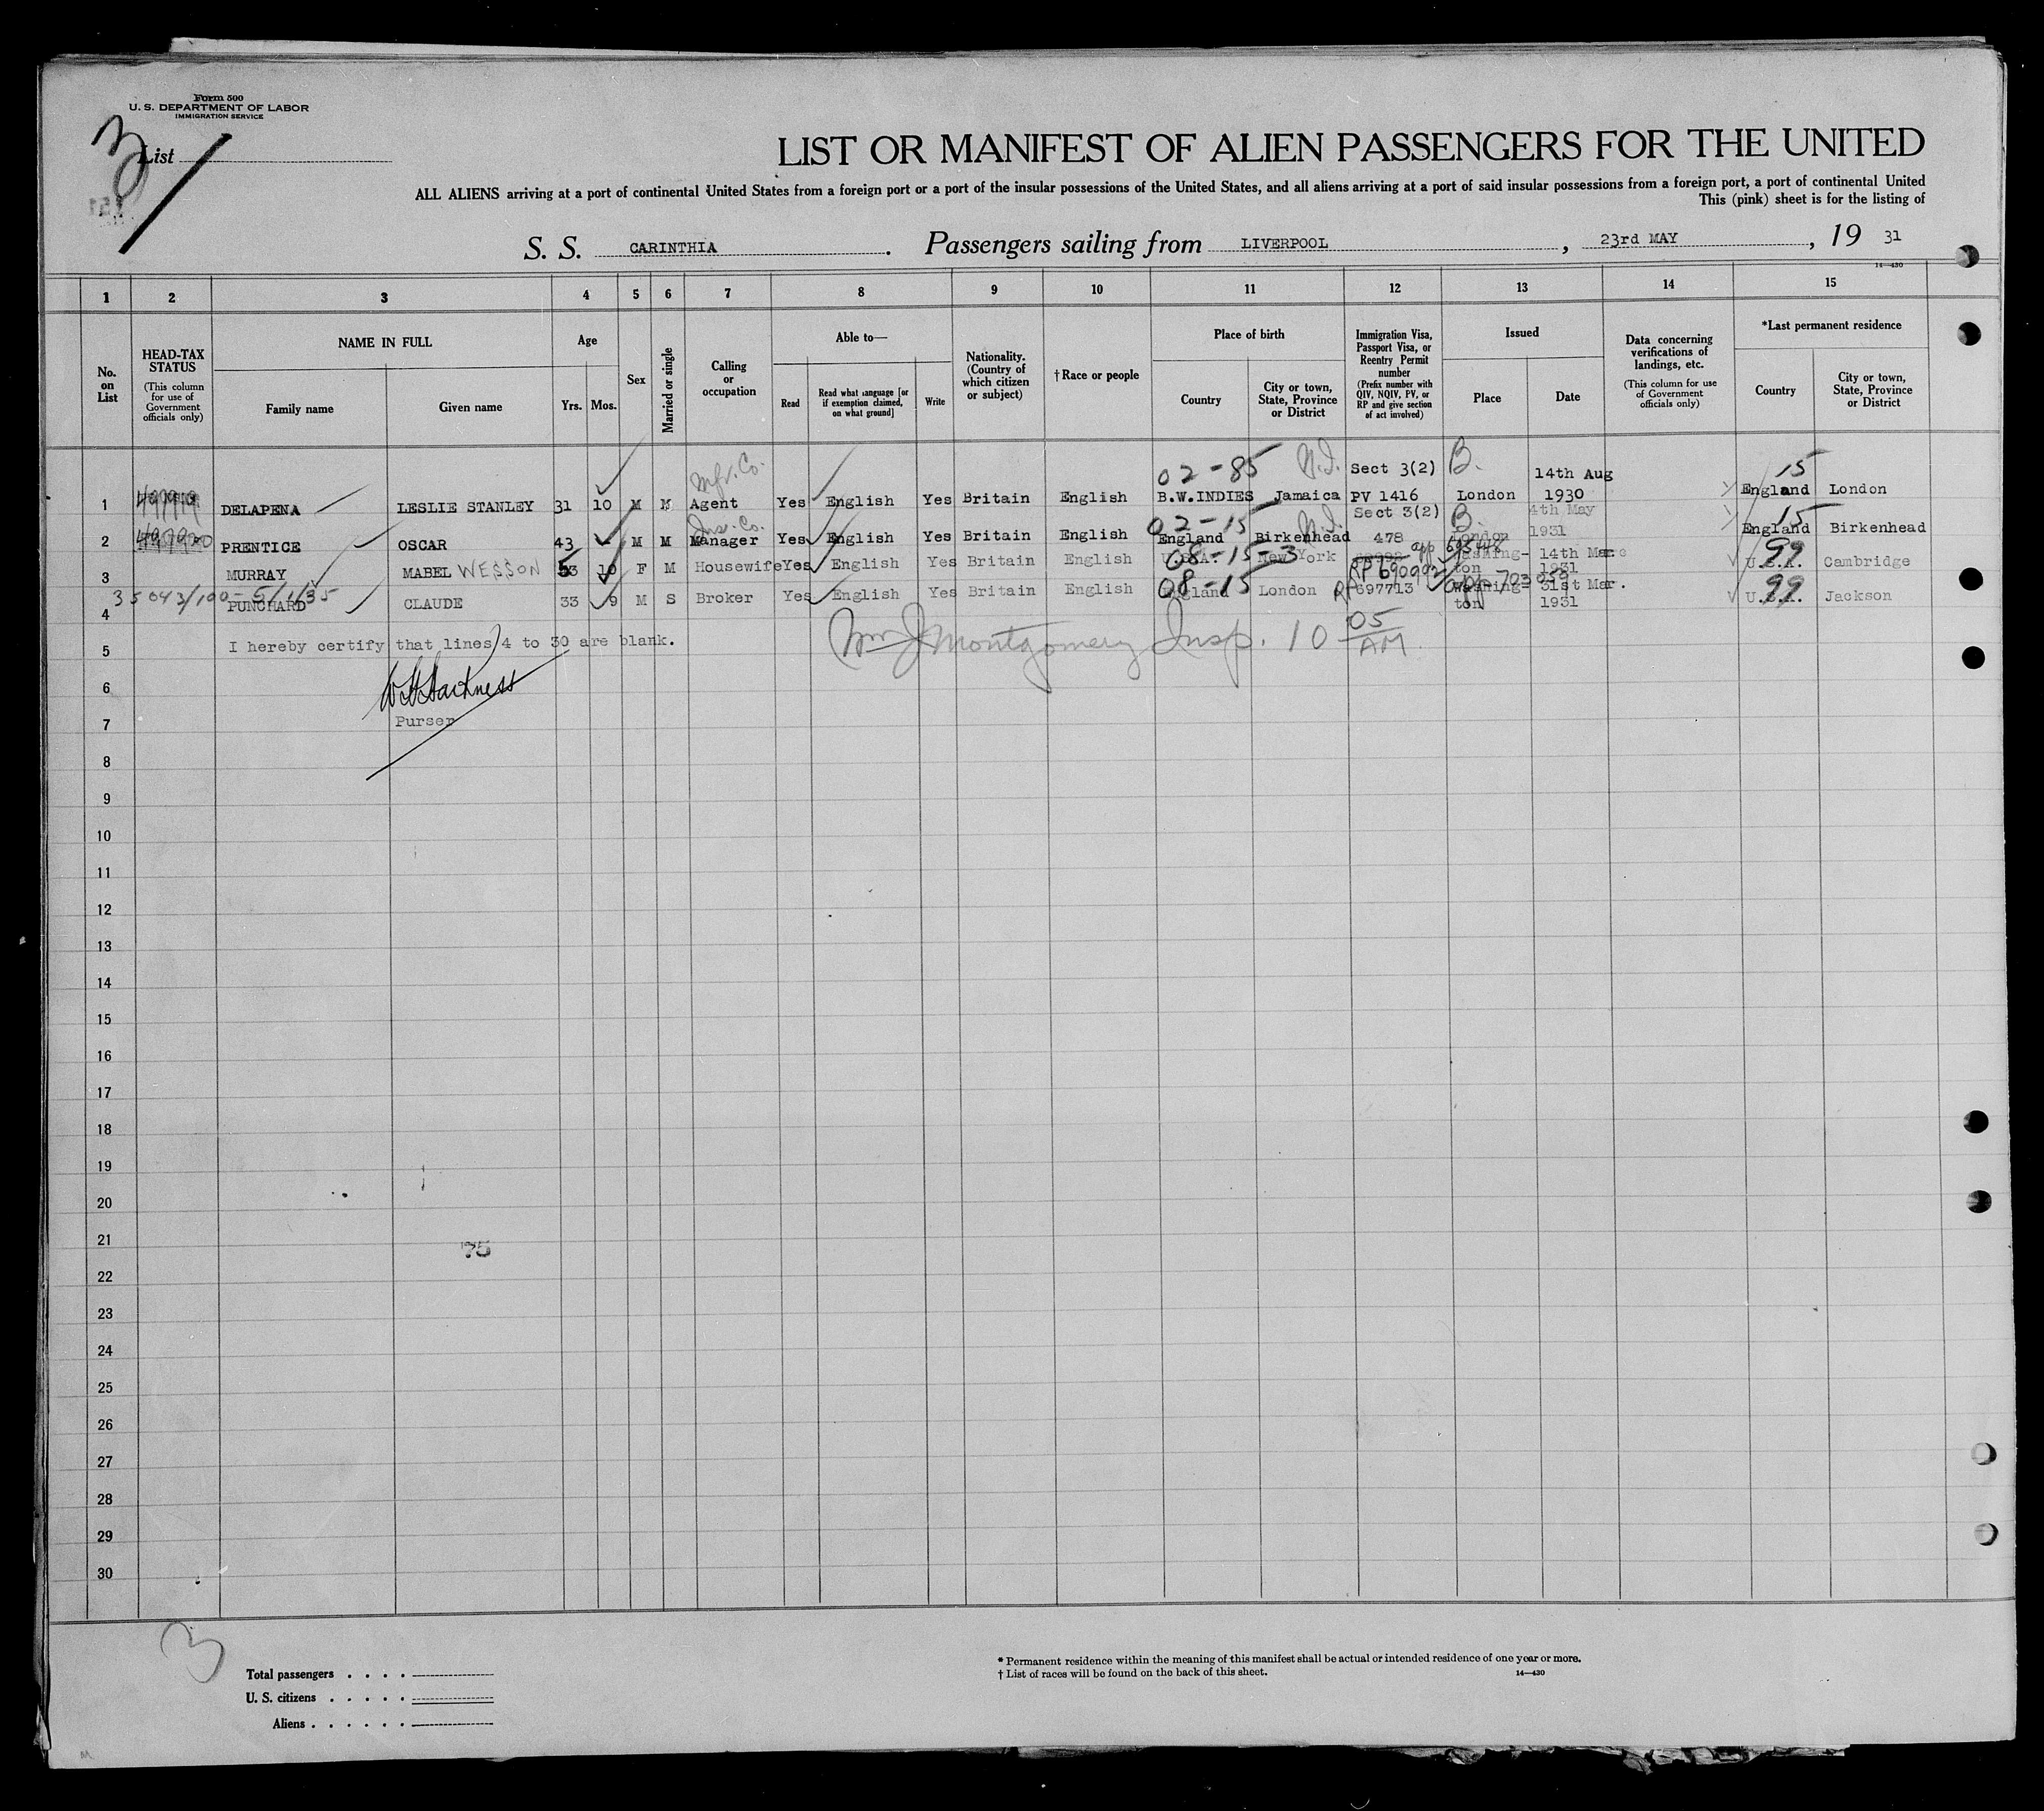 Form 500
U. S. DEPARTMENT OF LABOR
IMMIGRATION SERVICE
3
List
LIST OR MANIFEST OF ALIEN PASSENGERS FOR THE UNITED
ALL ALIENS arriving at a port of continental United States from a foreign port or a port of the insular possessions of the United States, and all aliens arriving at a port of said insular possessions from a foreign port, a port of continental United
This (pink) sheet is for the listing of
S. S. CARINTHIA. Passengers sailing from LIVERPOOL, 23rd MAY, 19 31
14—430
1 2 3 4 5 6 7 8 9 10 11 12 13 14 15
No. on List
HEAD-TAX STATUS (This column for use of Government officials only)
NAME IN FULL
Family name Given name
Age
Yrs. Mos.
Sex
Married or single
Calling or occupation
Able to—
Read Read what language [or if exemption claimed, on what ground] Write
Nationality. (Country of which citizen or subject)
†Race or people
Place of birth
Country City or town, State, Province or District
Immigration Visa, Passport Visa, or Reentry Permit number (Prefix number with QIV, NQIV, PV, or RP and give section of act involved)
Issued
Place Date
Data concerning verifications of landings, etc. (This column for use of Government officials only)
*Last permanent residence
Country City or town, State, Province or District
Mfr. Co. 02-85 N.I. Sect 3(2) B. 14th Aug 15
1 DELAPENA LESLIE STANLEY 31 10 M M Agent Yes English Yes Britain English B.W.INDIES Jamaica PV 1416 London 1930 England London
Ins. Co. 02-15 N.I. Sect 3(2) B. 4th May 15
2 PRENTICE OSCAR 43 M M Manager Yes English Yes Britain English England Birkenhead 478 London 1931 England Birkenhead
3 MURRAY MABEL WESSON 53 10 F M Housewife Yes English Yes Britain English U.S.A. 08-15-3 New York RP 690992 Washington 14th Mar. 1931 U.S.A. 99 Cambridge
35043/100-5/1/35
4 PUNCHARD CLAUDE 33 9 M S Broker Yes English Yes Britain English England 08-15 London RP 697713 Washington 31st Mar. 1931 U.S.A. 99 Jackson
5 I hereby certify that lines 4 to 30 are blank. Wm J Montgomery Insp. 10 05 AM
6 W H Harkness
7 Purser
8
9
10
11
12
13
14
15
16
17
18
19
20
21 75
22
23
24
25
26
27
28
29
30
3
Total passengers . . . .
U. S. citizens . . . . .
Aliens . . . . . .
* Permanent residence within the meaning of this manifest shall be actual or intended residence of one year or more.
† List of races will be found on the back of this sheet. 14—430